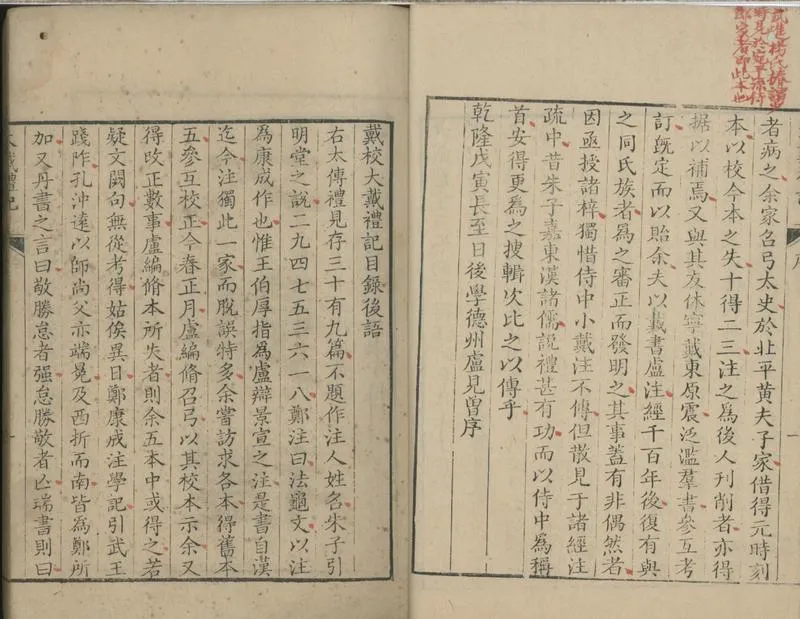 郎家者即此本也
者病之余家召弓太史於北平黃夫子家借得元時刻
本以校今本之失十得二三注之為後人刊削者亦得
据以補焉又與其友休寧戴東原震泛濫羣書參互考
訂旣定而以貽余夫以戴書盧注經千百年後復有與
之同氏族者為之審正而發明之其事蓋有非偶然者
因亟授諸梓獨惜侍中小戴注不傳但散見于諸經注
疏中昔朱子嘉東漢諸儒說禮甚有功而以侍中為稱
首安得更為之搜輯次比之以傳乎
乾隆戊寅長至日後學德州盧見曾序
戴校大戴禮記目録後語
右太傅禮見存三十有九篇不題作注人姓名朱子引
明堂之說二九四七五三六一八鄭注曰法龜文以注
為康成作也惟王伯厚指為盧辯景宣之注是書自漢
迄今注獨此一家而脫誤特多余嘗訪求各本得舊本
五參互校正今春正月盧編脩召弓以其校本示余又
得改正數事盧編脩本所失者則余五本中或得之若
疑文闕句無從考得姑俟異日鄭康成注學記引武王
踐阼孔沖遠以師尚父亦端冕及西折而南皆為鄭所
加又丹書之言曰敬勝怠者强怠勝敬者亾瑞書則曰
大戴禮記